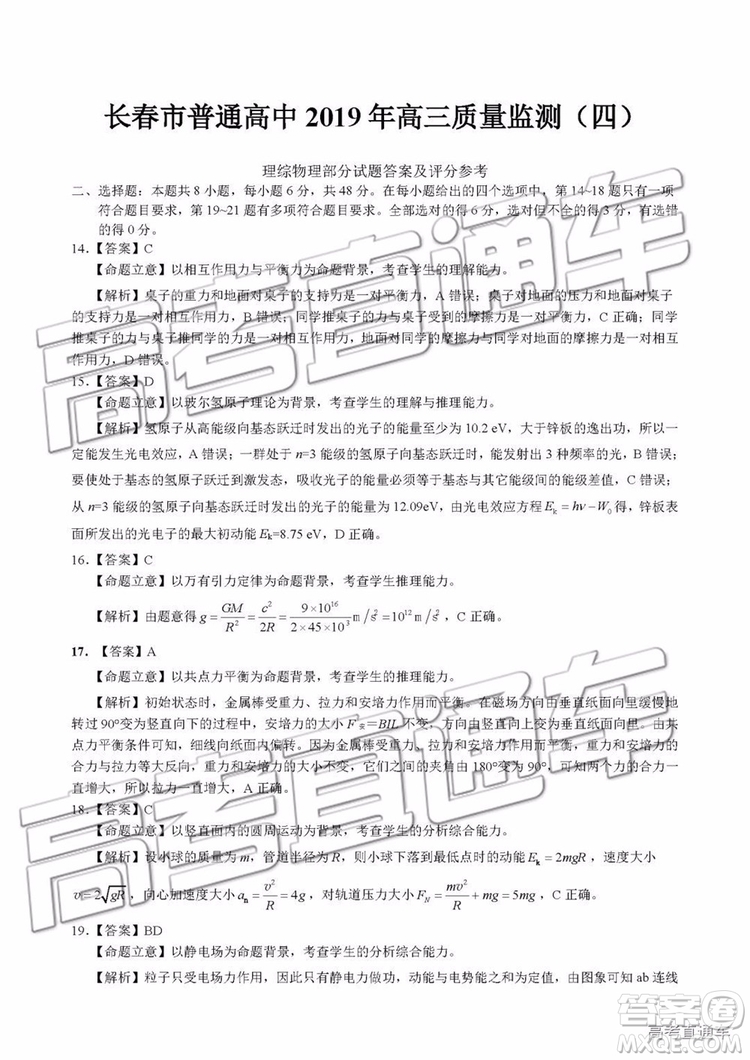 长春市普通高中 2019 年高三质量监测（四）
理综物理部分试题答案及评分参考
二、选择题：本题共 8 小题，每小题 6 分，共 48 分。在每小题给出的四个选项中，第 14~18 题只有一项
符合题目要求，第 19~21 题有多项符合题目要求。全部选对的得 6 分，选对但不全的得 3 分，有选错
的得 0 分。
14.【答案】C
【命题立意】以相互作用力与平衡力为命题背景，考查学生的理解能力。
【解析】桌子的重力和地面对桌子的支持力是一对平衡力，A 错误；桌子对地面的压力和地面对桌子
的支持力是一对相互作用力，B 错误；同学推桌子的力与桌子受到的摩擦力是一对平衡力，C 正确；同学
推桌子的力与桌子推同学的力是一对相互作用力，地面对同学的摩擦力与同学对地面的摩擦力是一对相互
作用力，D 错误。
15.【答案】D
【命题立意】以玻尔氢原子理论为背景，考查学生的理解与推理能力。
【解析】氢原子从高能级向基态跃迁时发出的光子的能量至少为 10.2 eV，大于锌板的逸出功，所以一
定能发生光电效应，A 错误；一群处于 n=3 能级的氢原子向基态跃迁时，能发出 3 种频率的光，B 错误；
要使处于基态的氢原子跃迁到激发态，吸收光子的能量必须等于基态与其它能级间的能量差，C 错误；
从 n=3 能级的氢原子向基态跃迁时发出的光子的能量为 12.09eV，由光电效应方程 Eₖ = hν − W₀ 得，锌板表
面所发出的光电子的最大初动能 Eₖ=8.75 eV，D 正确。
16.【答案】C
【命题立意】以万有引力定律为命题背景，考查学生推理能力。
【解析】由题意得 g = GM/R² = c²/2R = 9×10¹⁶/(2×45×10³) m/s² = 10¹² m/s²，C 正确。
17．【答案】A
【命题立意】以共点力平衡为命题背景，考查学生的推理能力。
【解析】初始状态时，金属棒受重力、拉力和安培力作用平衡。在磁场方向由垂直纸面向里缓慢地
转过 90°变为竖直向下的过程中，安培力的大小 F安＝BIL 不变，方向由竖直向上变为垂直纸面向里。由共
点力平衡条件可知，细线向纸面内偏转。因为金属棒受重力、拉力和安培力作用平衡，重力与拉力的
合力与拉力等大反向，重力和安培力的大小不变，它们之间的夹角由 180°变为 90°，所以两个力的合力一
直增大，所以拉力一直增大，A 正确。
18.【答案】C
【命题立意】以竖直面内的圆周运动为命题背景，考查学生的分析综合能力。
【解析】设小球的质量为 m，管道半径为 R，则小球下落到最低点时，动能大小 Eₖ = 2mgR，速度大小
v = 2√gR，向心加速度大小 aₙ = v²/R = 4g，对轨道压力大小 F_N = mv²/R + mg = 5mg，C 正确。
19.【答案】BD
【命题立意】以静电场为命题背景，考查学生的分析综合能力。
【解析】粒子只受电场力，因此只有静电力做功，动能与电势能之和为定值，由图象可知 ab 连线
高考直通车
高考直通车
答案圈
高考直通车
MXQE.COM